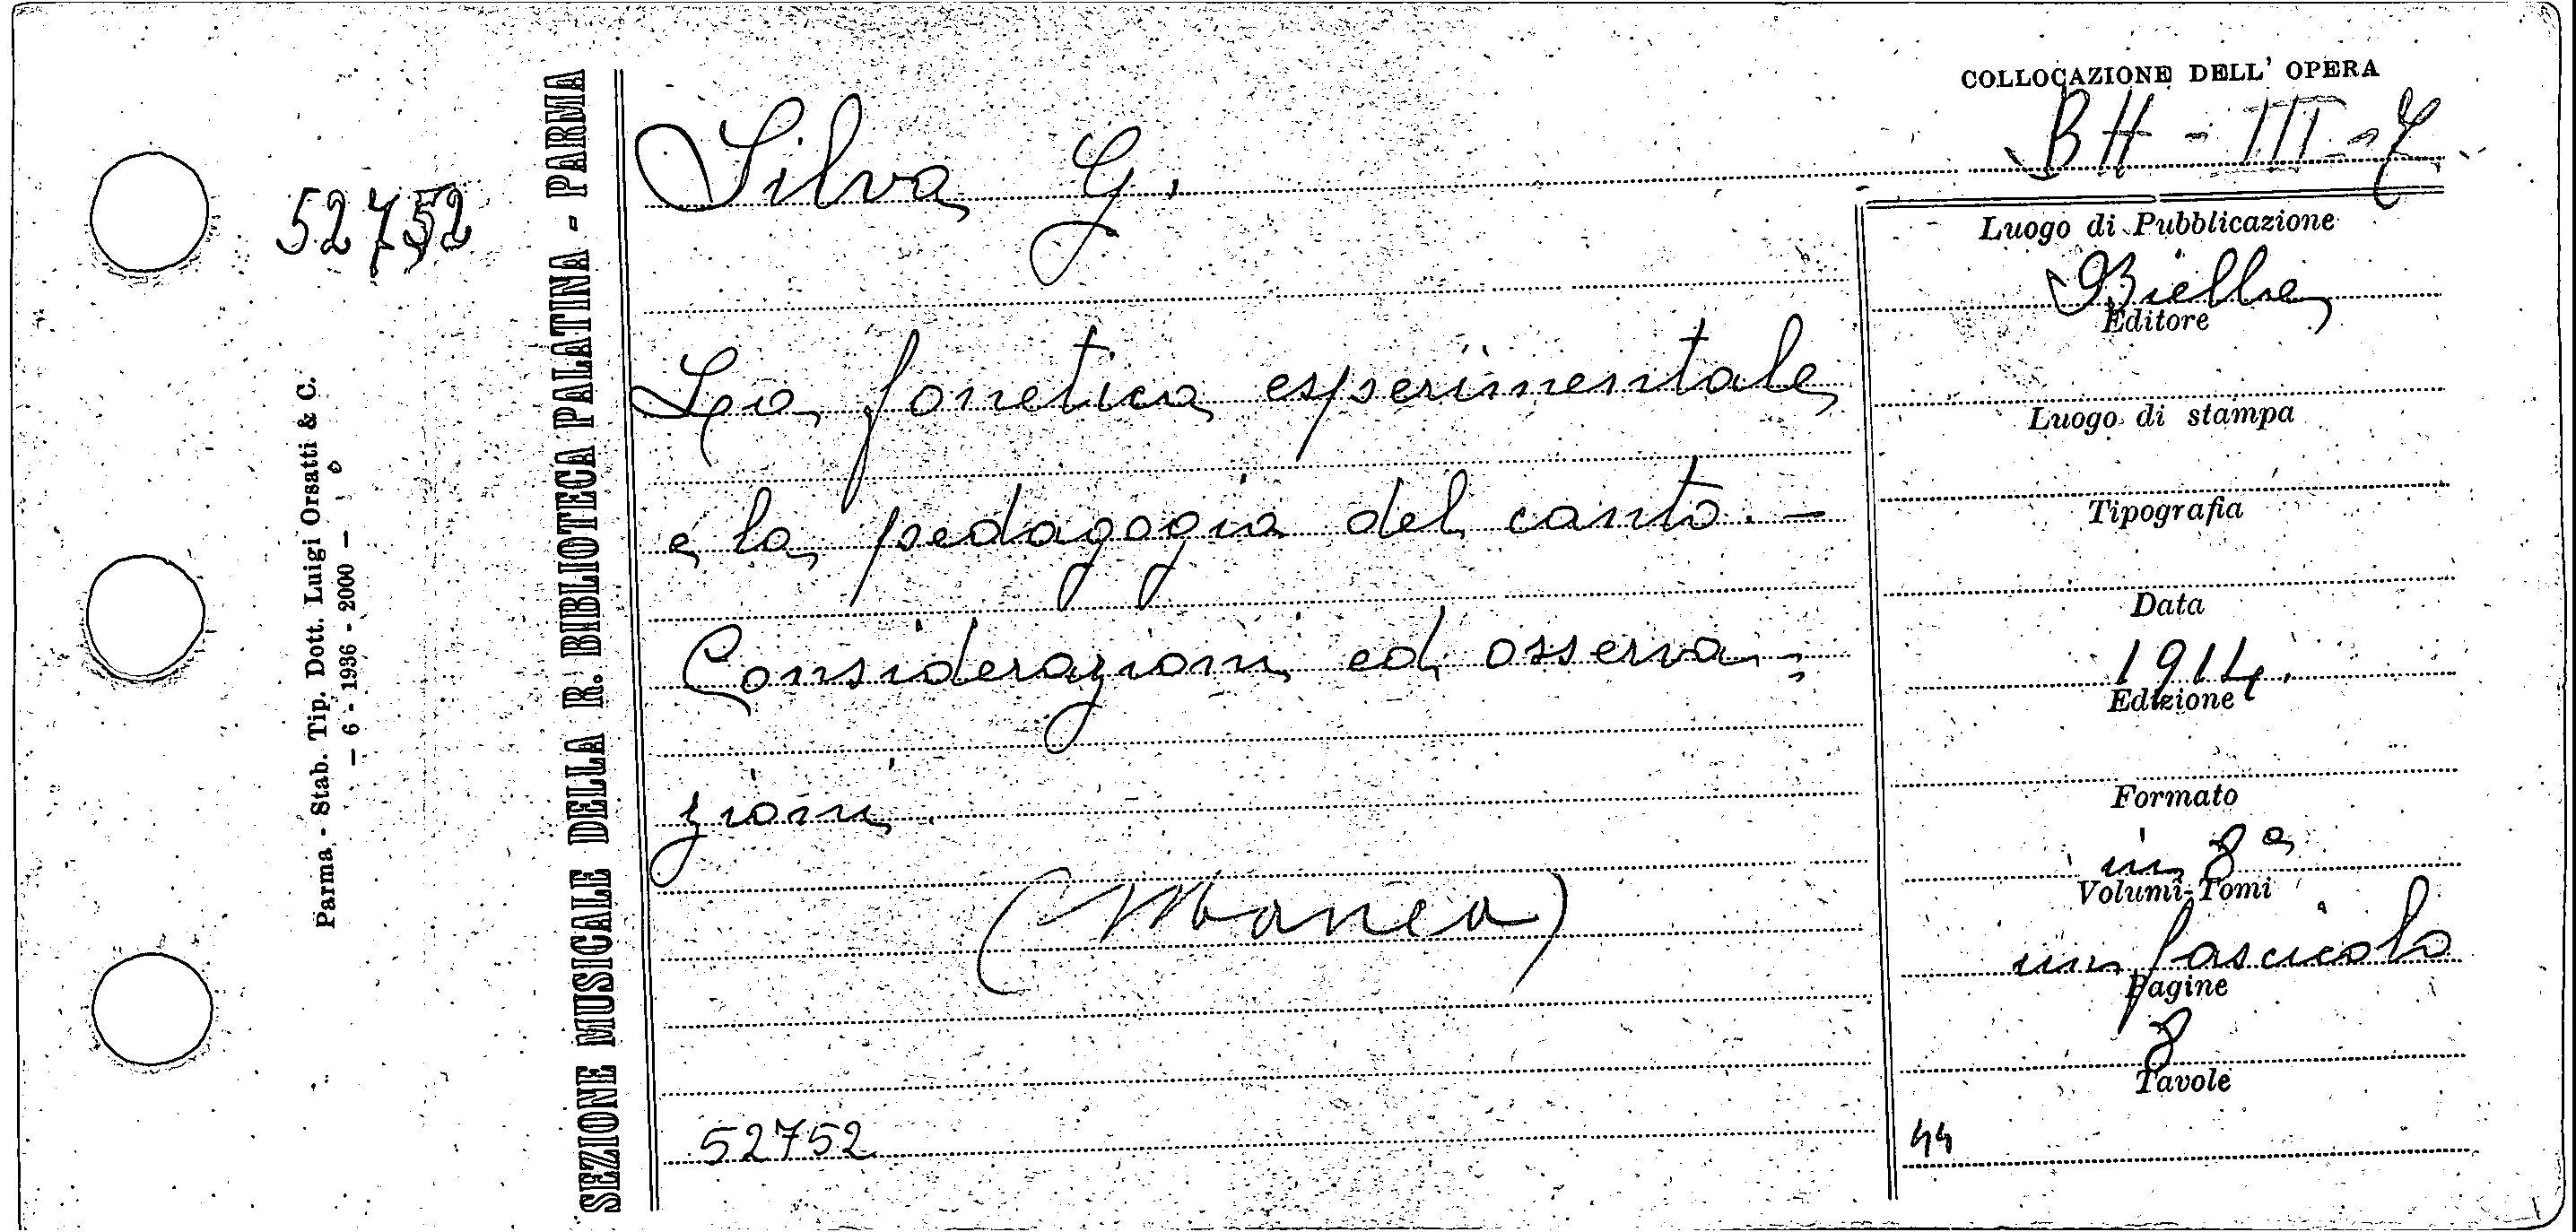 COLLOCAZIONE DELL' OPERA
BH - III - 7
52752
Parma - Stab. Tip. Dott. Luigi Orsatti & C.
— 6 - 1936 - 2000 —
SEZIONE MUSICALE DELLA R. BIBLIOTECA PALATINA - PARMA
Silva G.
La fonetica esperimentale
e la pedagogia del canto. -
Considerazioni ed osserva-
zioni.
(Manca)
52752
Luogo di Pubblicazione
Biella
Editore
Luogo di stampa
Tipografia
Data
1914.
Edizione
Formato
in 8°
Volumi-Tomi
un fascicolo
Pagine
8
Tavole
44